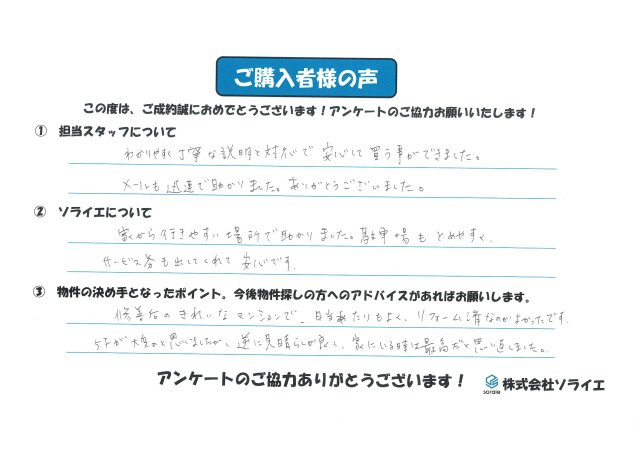 ご購入者様の声
この度は、ご成約誠におめでとうございます！アンケートのご協力お願いいたします！
① 担当スタッフについて
わかりやすく丁寧な説明と対応で安心して買う事ができました。
メールも迅速で助かりました。ありがとうございました。
② ソライエについて
家から行きやすい場所で助かりました。駐車場もとめやすく、
サービス券も出してくれて安心です。
③ 物件の決め手となったポイント。今後物件探しの方へのアドバイスがあればお願いします。
修善後のきれいなマンションで、日当たりもよく、リフォーム済なのがよかったです。
5Fが大変かと思いましたが、逆に見晴らしが良く、家にいる時は最高だと思い直しました。
アンケートのご協力ありがとうございます！
soraie 株式会社ソライエ